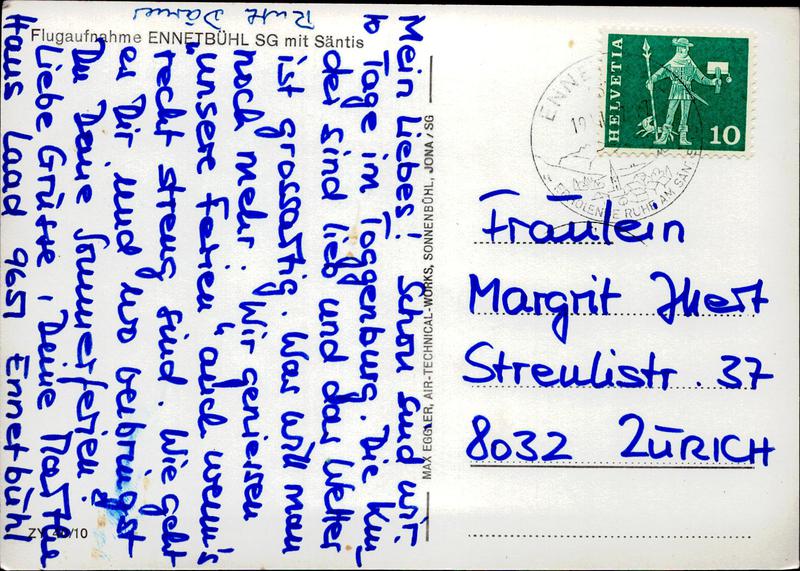 Flugaufnahme ENNETBÜHL SG mit Säntis
Mein Liebes! Schon sind wir
10 Tage im Toggenburg. Die Kin-
der sind lieb und das Wetter
ist grossartig. Was will man
noch mehr. Wir geniessen
"unsere Ferien" auch wenn's
recht streng sind. Wie geht
es Dir und wo verbringst
Du Deine Sommerferien?
Liebe Grüsse, Deine
Haus Laad 9651 Ennetbühl
Ruth
MAX EGGLER, AIR-TECHNICAL-WORKS, SONNENBÜHL, JONA/SG
HELVETIA
10
ENNE
RUHE AM SÄNTIS
Fräulein
Margrit
Streulistr. 37
8032 ZÜRICH